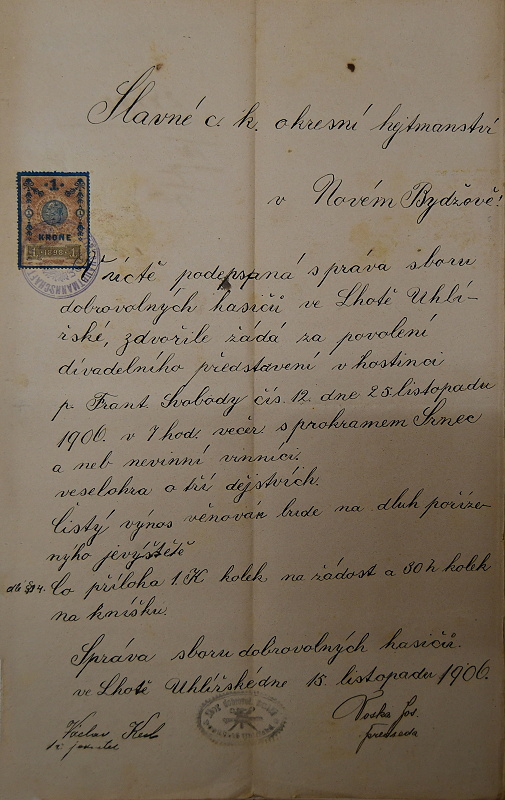 Slavné c. k. okresní hejtmanství
v Novém Bydžově!
1
KRONE
1898
V úctě podepsaná správa sboru
dobrovolných hasičů ve Lhotě Uhlí-
řské, zdvořile žádá za povolení
divadelního představení v hostinci
p. Frant. Svobody čís. 12. dne 25. listopadu
1906. v 7 hod. večer s prohramem Srnec
a neb nevinní vinníci.
veselohra o tří dějstvích.
čistý výnos věnován bude na dluh poříze-
nýho jevýště
Co příloha 1. K kolek na žádost a 30 h kolek
na knížku.
Správa sboru dobrovolných hasičů.
ve Lhotě Uhlířské dne 15. listopadu 1906.
Václav
Voska Jos.
předseda